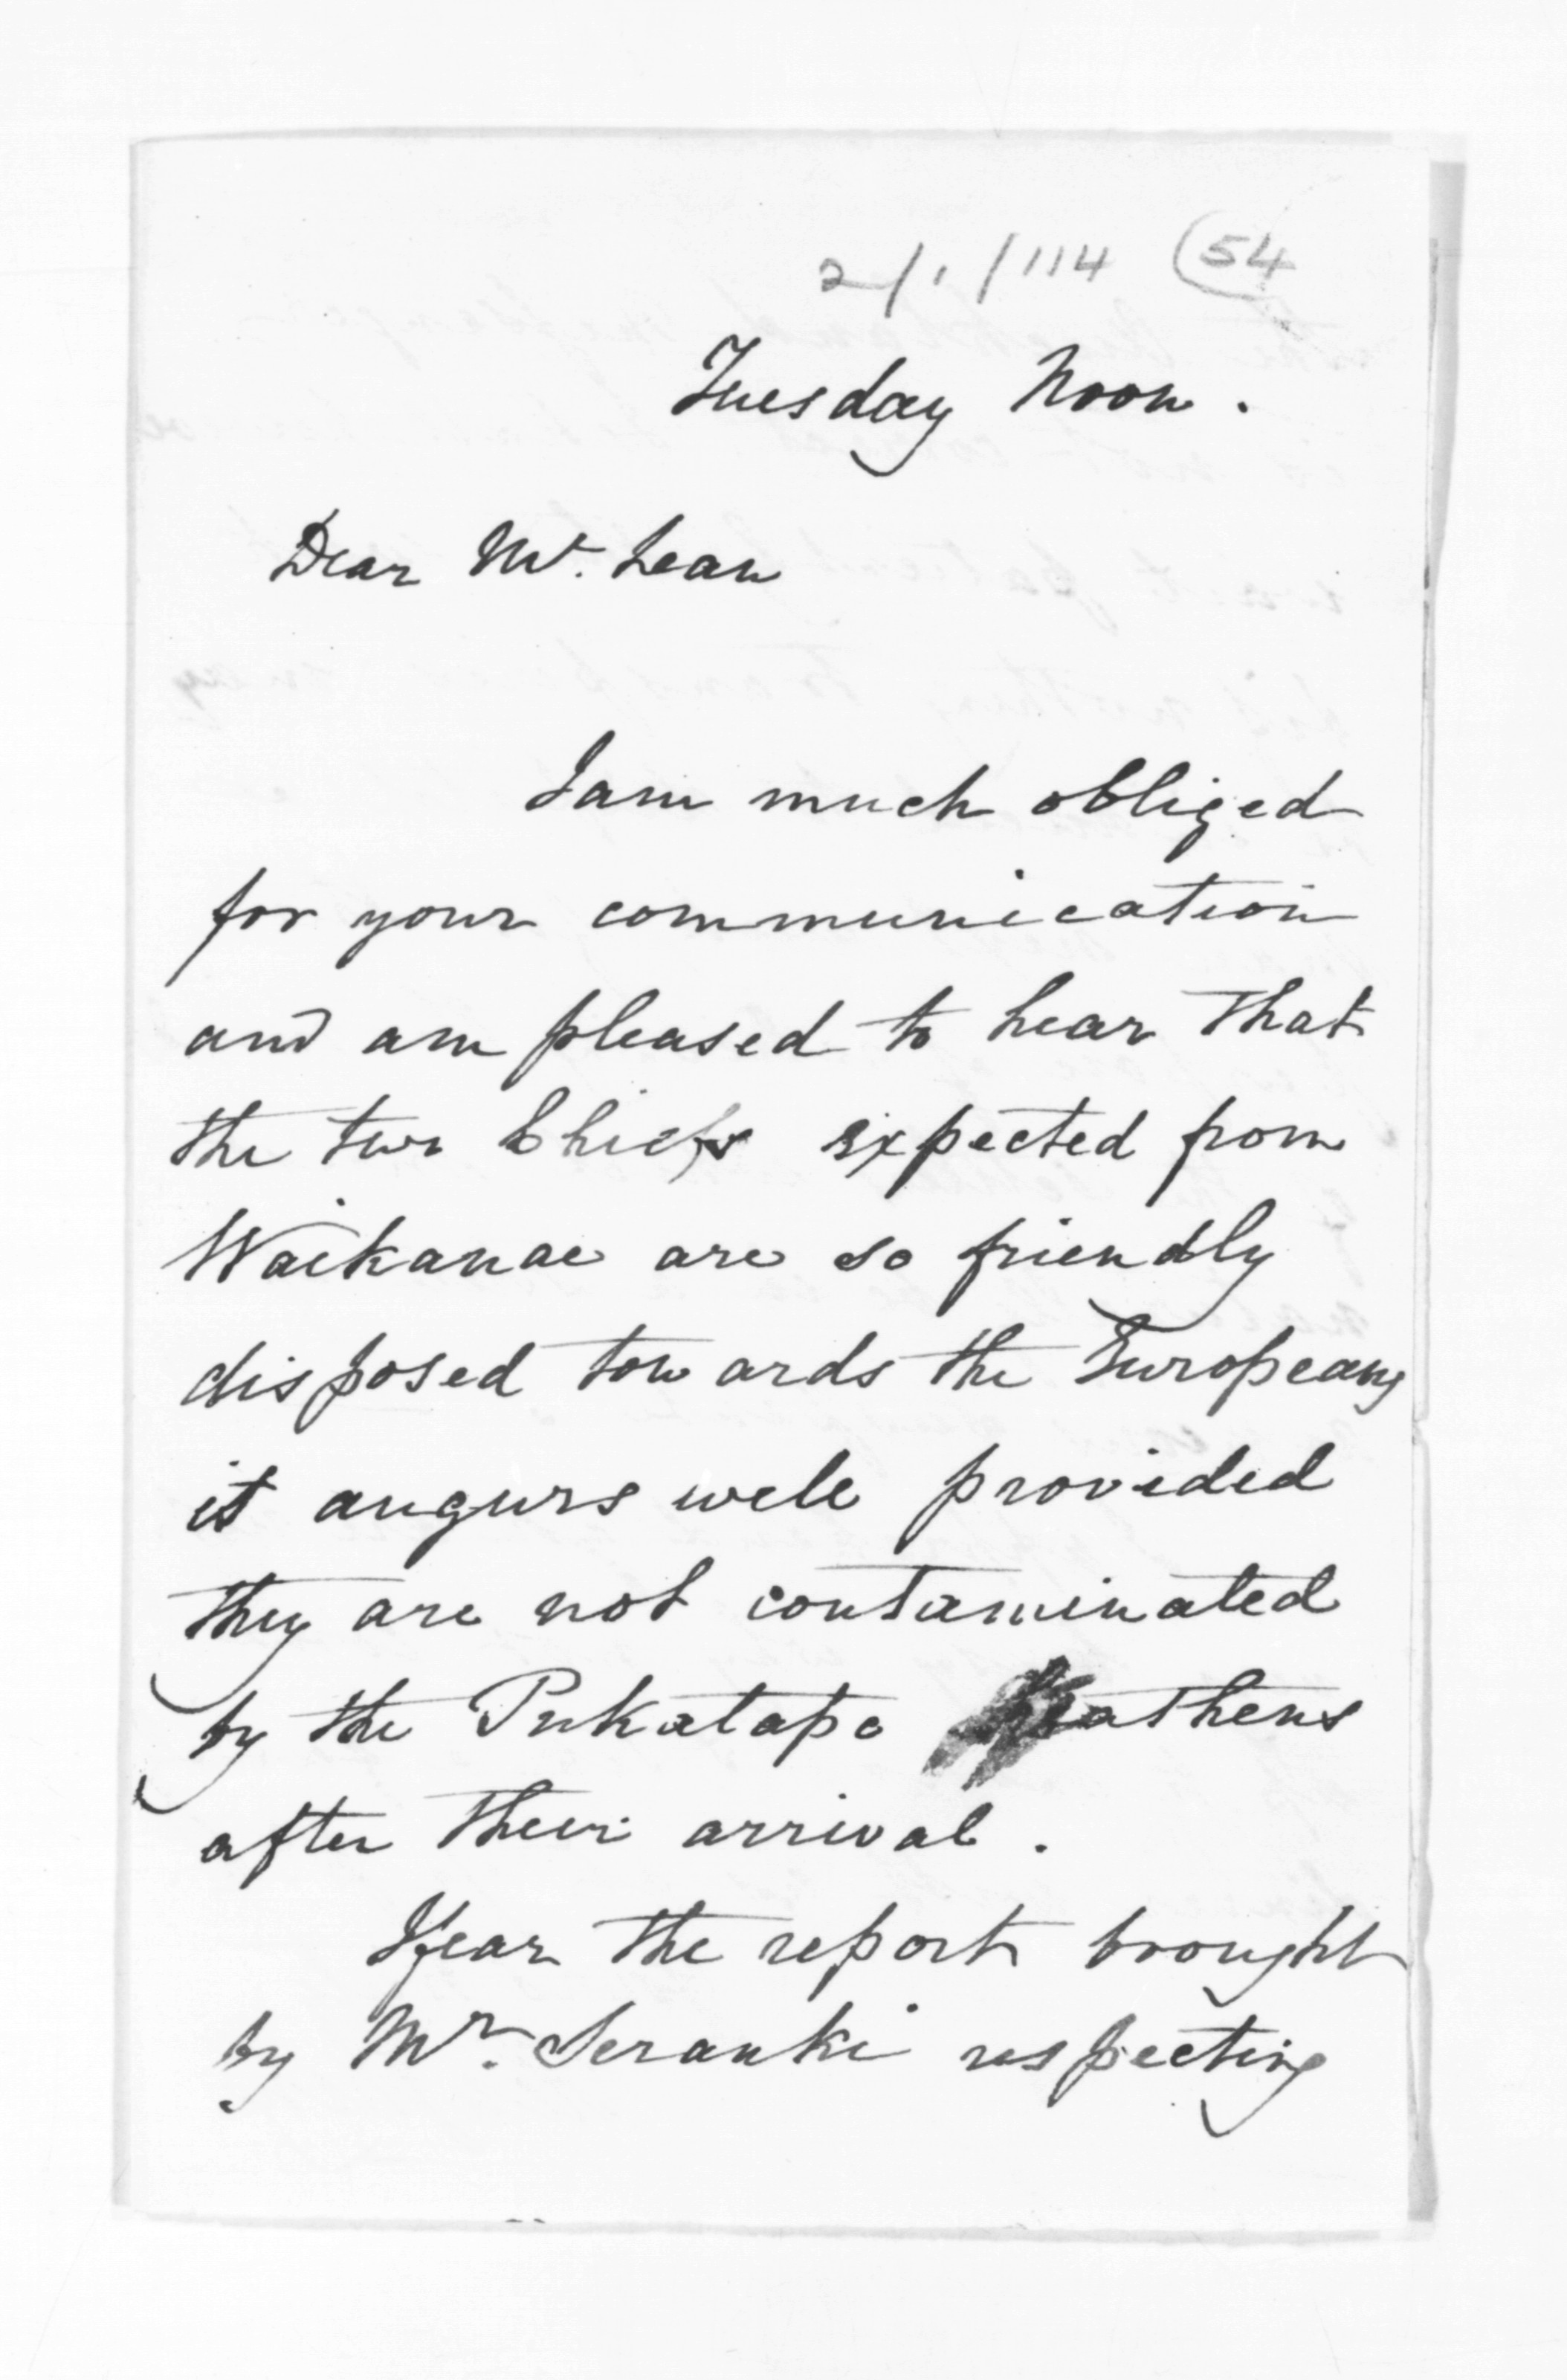 2/1/114 (54
Tuesday Noon.
Dear Mc. Lean
I am much obliged
for your communication
and am pleased to hear that
the two Chiefs expected from
Waikanae are so friendly
disposed towards the Europeans
it augurs well provided
they are not contaminated
by the Puketapo heathens
after their arrival.
I fear the report brought
by Mr. Seranki respecting